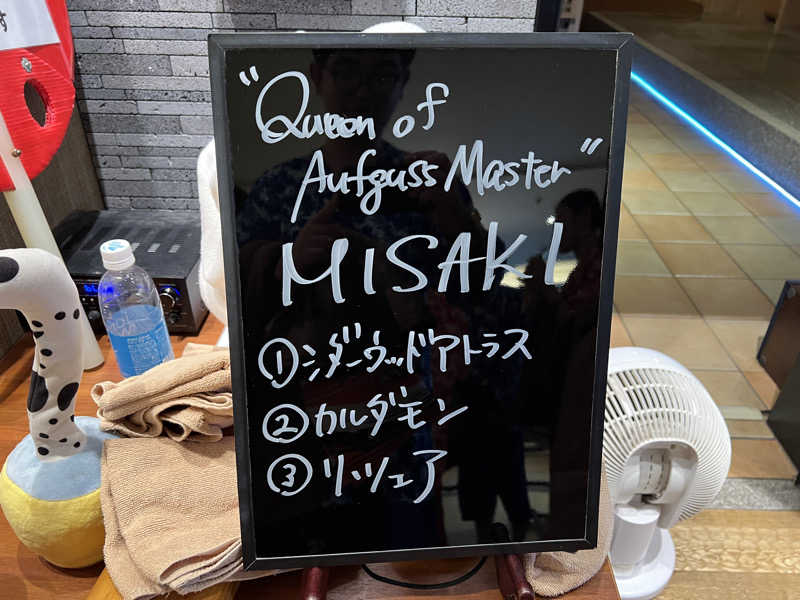 す
"Queen of
Aufguss Master"
MISAKI
①シダーウッドアトラス
②カルダモン
③リツェア